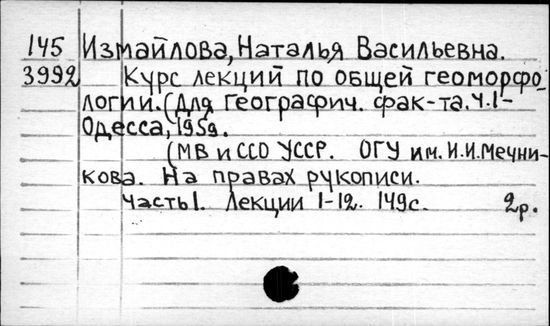 145 Измайлова, Наталья Васильевна.
3992 Курс лекций по общей геоморфо-
логии. (Для географич. фак-та. Ч. 1-
Одесса, 1959.
(МВ и ССО УССР. ОГУ им. И.И. Мечни-
кова. На правах рукописи.
Часть 1. Лекции 1-12. 149с. 2р.